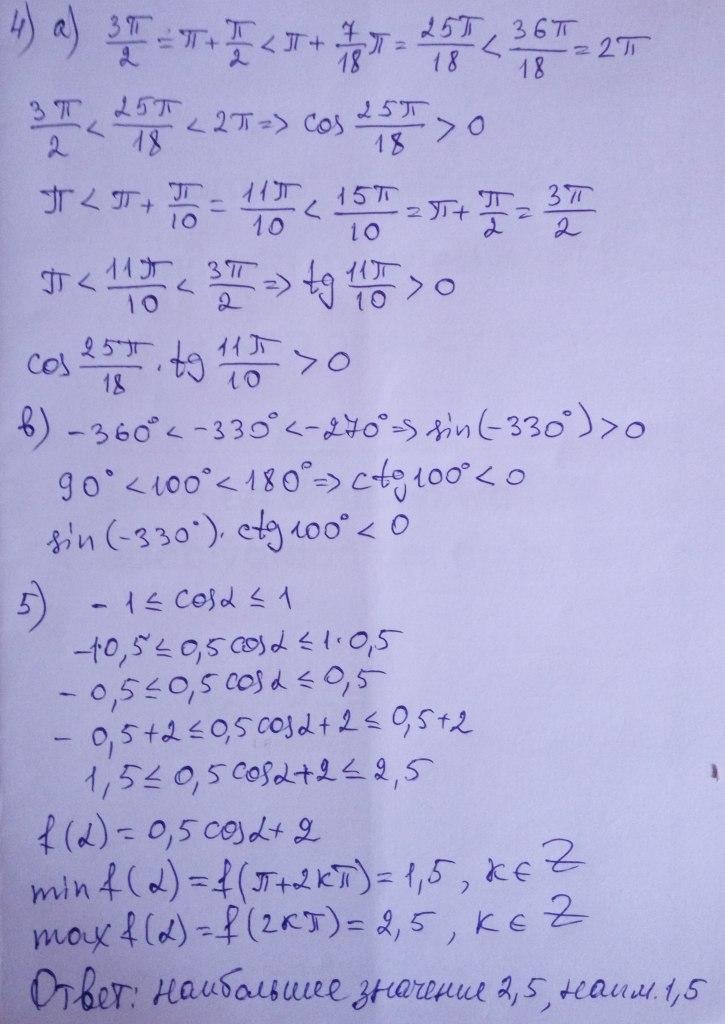 4) а) 3π/2 = π + π/2 < π + 7/18 π = 25π/18 < 36π/18 = 2π
3π/2 < 25π/18 < 2π => cos 25π/18 > 0
π < π + π/10 = 11π/10 < 15π/10 = π + π/2 = 3π/2
π < 11π/10 < 3π/2 => tg 11π/10 > 0
cos 25π/18 · tg 11π/10 > 0
в) -360° < -330° < -270° => sin(-330°) > 0
90° < 100° < 180° => ctg 100° < 0
sin(-330°) · ctg 100° < 0
5) -1 ≤ cosα ≤ 1
-1·0,5 ≤ 0,5 cosα ≤ 1·0,5
- 0,5 ≤ 0,5 cosα ≤ 0,5
- 0,5+2 ≤ 0,5cosα+2 ≤ 0,5+2
1,5 ≤ 0,5 cosα+2 ≤ 2,5
f(α) = 0,5 cosα + 2
min f(α) = f(π+2kπ) = 1,5, k ∈ Z
max f(α) = f(2kπ) = 2,5, k ∈ Z
Ответ: наибольшее значение 2,5, наим. 1,5